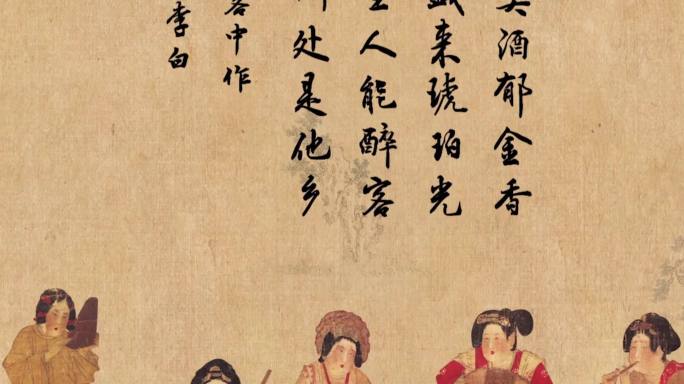 美酒郁金香
盛来琥珀光
主人能醉客
处是他乡
客中作
李白